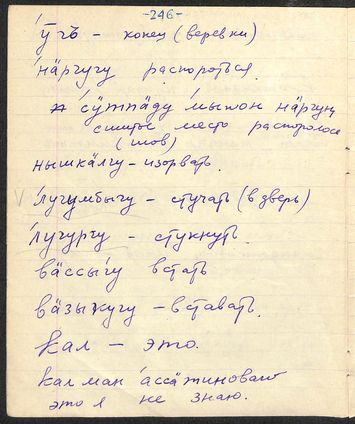 -246-
ӱгъ - конец (веревки)
нӓргугу распороться.
сӱтпӓду мыкон нӓргун
сшитое место распоролось
(шов)
нышкӓлгу - изорвать.
лугумбыгу - стучать (в дверь)
лугургу - стукнуть.
вӓссыгу встать
вӓзыкугу - вставать.
кал - это.
кал ман
это я не знаю.